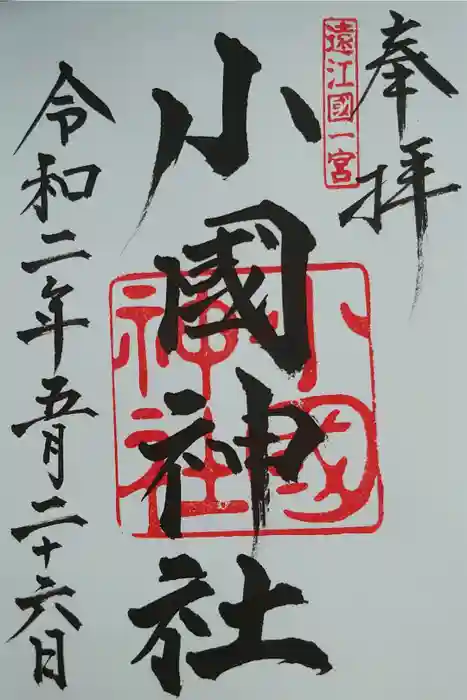 奉拝
遠江國一宮
小國神社
小國
神社
令和二年五月二十六日